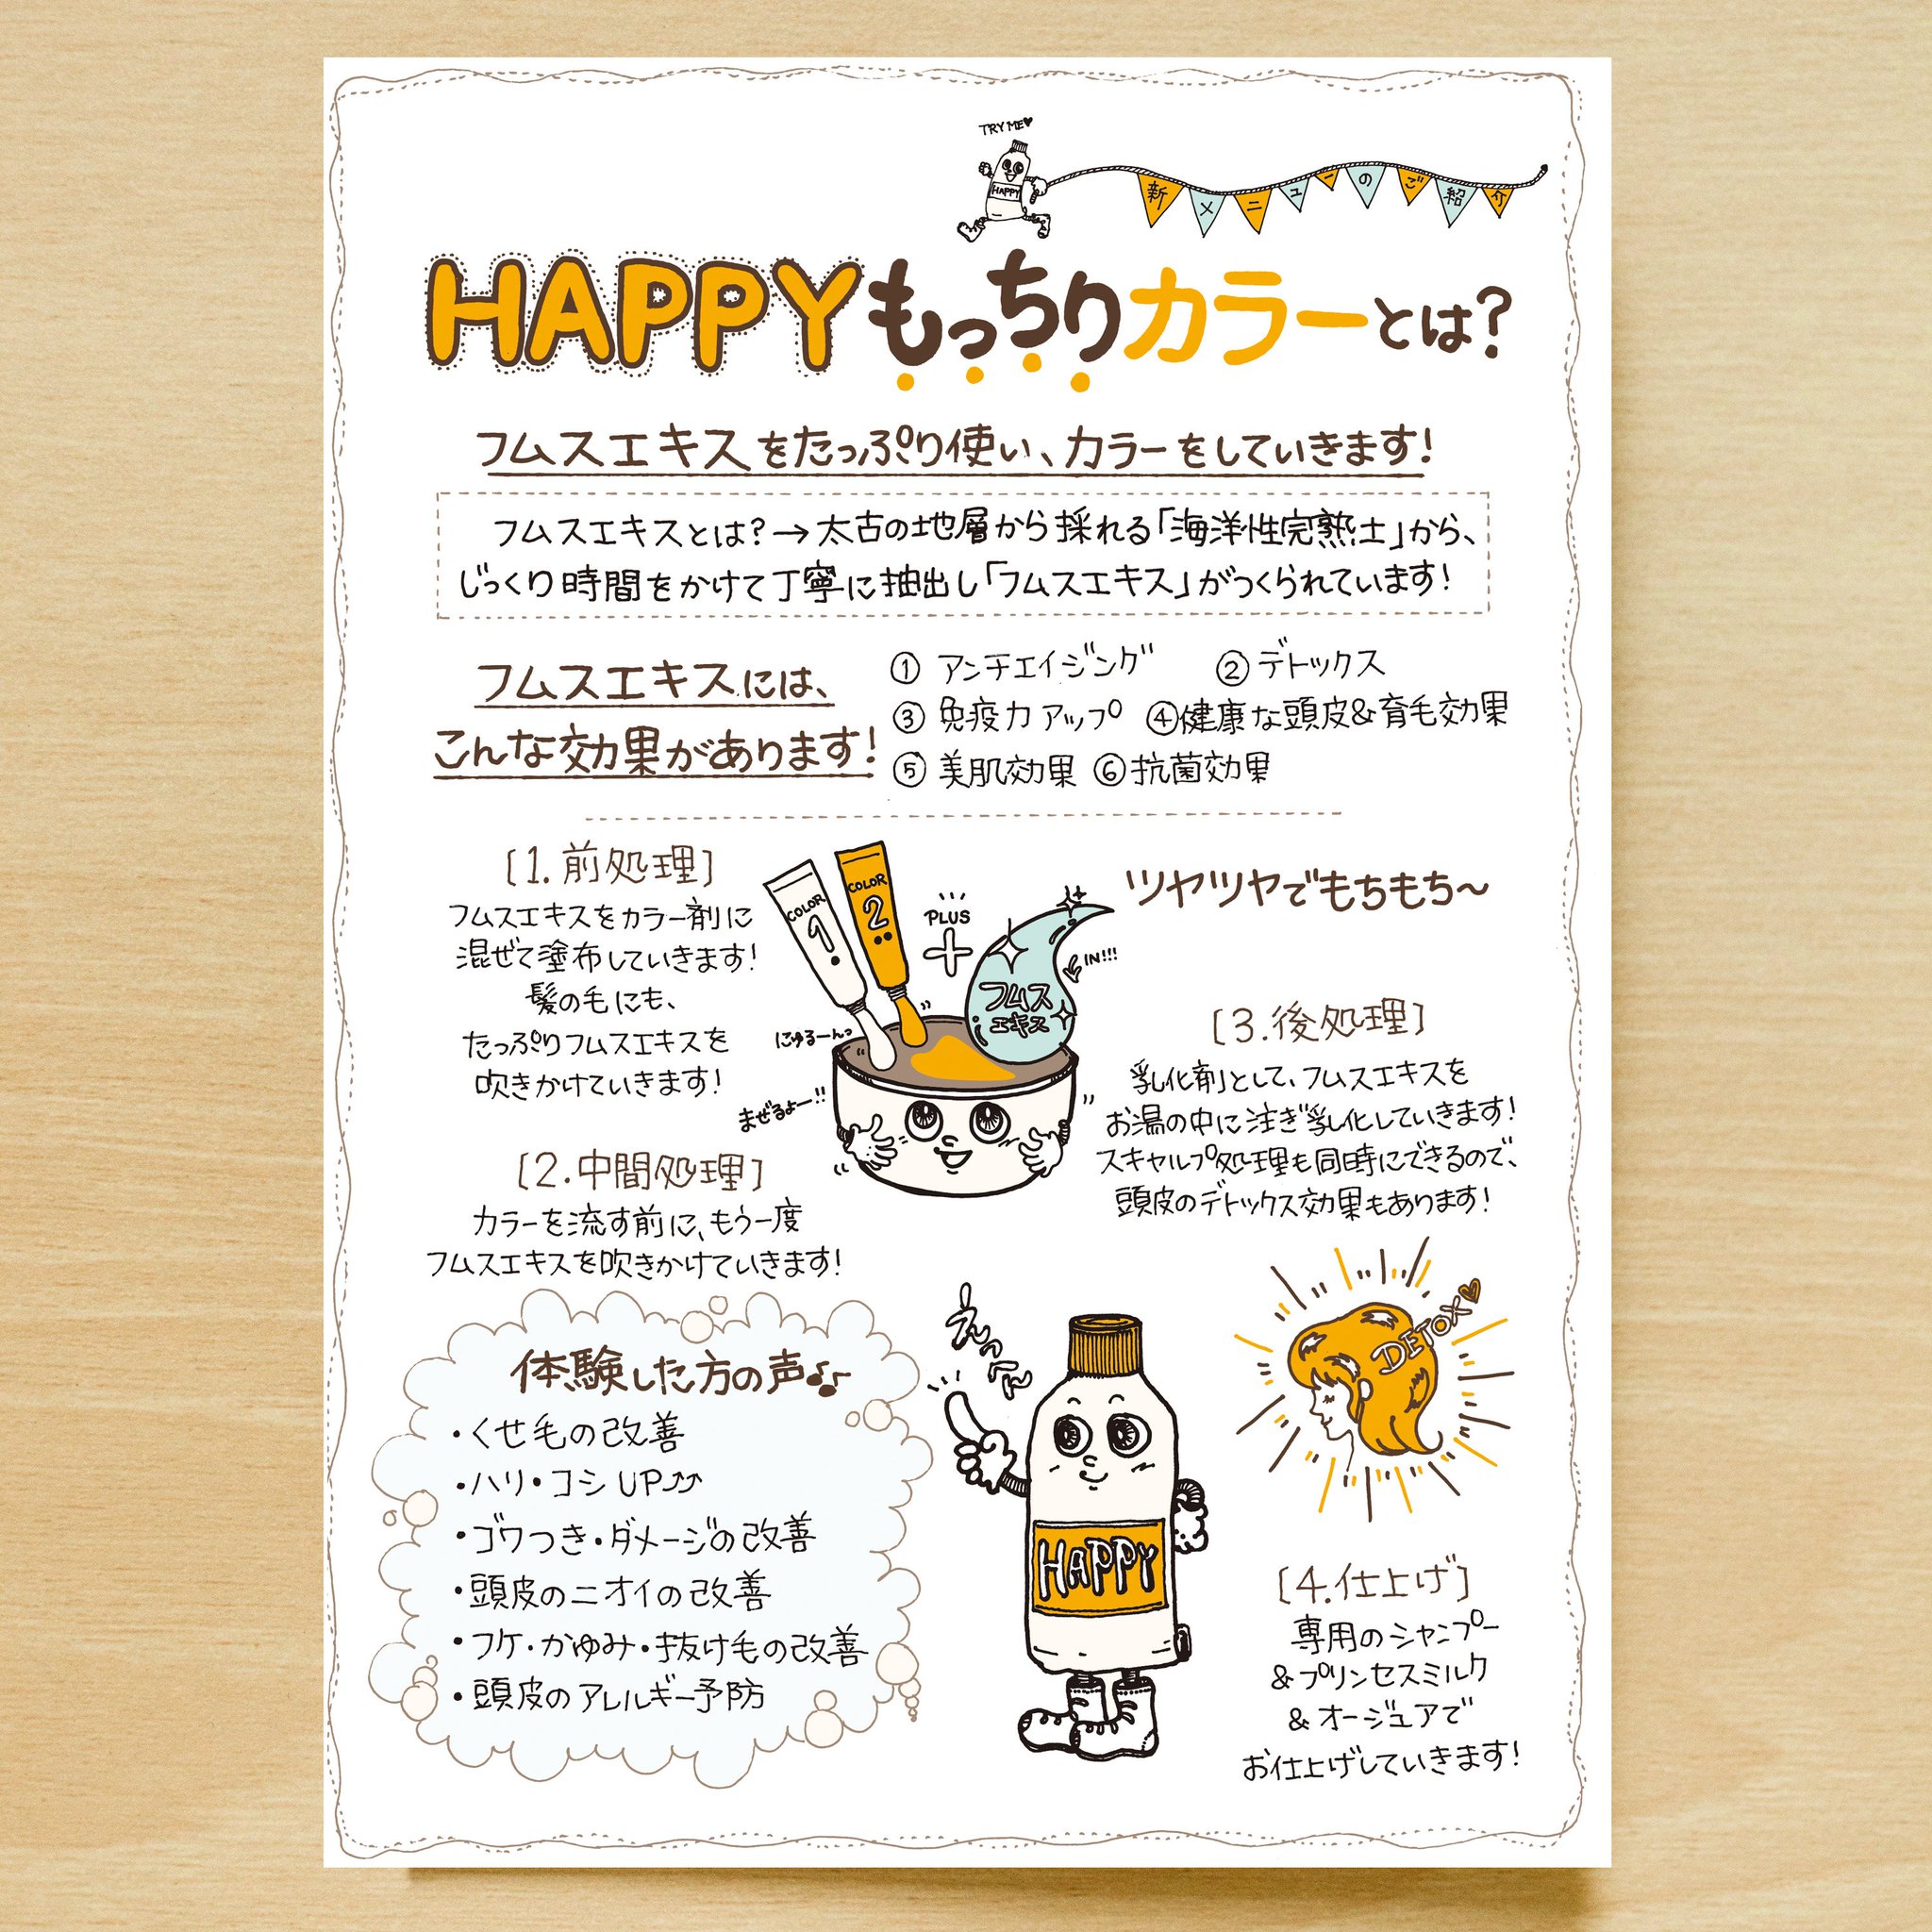 TRY ME♥
HAPPY
新メニューのご紹介
HAPPYもっちりカラーとは?
フムスエキスをたっぷり使い、カラーをしていきます!
フムスエキスとは?→太古の地層から採れる「海洋性完熟土」から、
じっくり時間をかけて丁寧に抽出し「フムスエキス」がつくられています!
フムスエキスには、
こんな効果があります!
① アンチエイジング ② デトックス
③ 免疫力アップ ④健康な頭皮&育毛効果
⑤ 美肌効果 ⑥抗菌効果
[1.前処理]
フムスエキスをカラー剤に
混ぜて塗布していきます!
髪の毛にも、
たっぷりフムスエキスを
吹きかけていきます!
COLOR
1
COLOR
2
PLUS
+
IN!!!
フムス
エキス
にゅるーんっ
まぜるよー!!
ツヤツヤでもちもち〜
[2.中間処理]
カラーを流す前に、もう一度
フムスエキスを吹きかけていきます!
[3.後処理]
乳化剤として、フムスエキスを
お湯の中に注ぎ乳化していきます!
スキャルプ処理も同時にできるので、
頭皮のデトックス効果もあります!
DETOX♥
体験した方の声♪
・くせ毛の改善
・ハリ・コシUP⤴⤴
・ゴワつき・ダメージの改善
・頭皮のニオイの改善
・フケ・かゆみ・抜け毛の改善
・頭皮のアレルギー予防
えっへん
HAPPY
[4.仕上げ]
専用のシャンプー
&プリンセスミルク
&オージュアで
お仕上げしていきます!